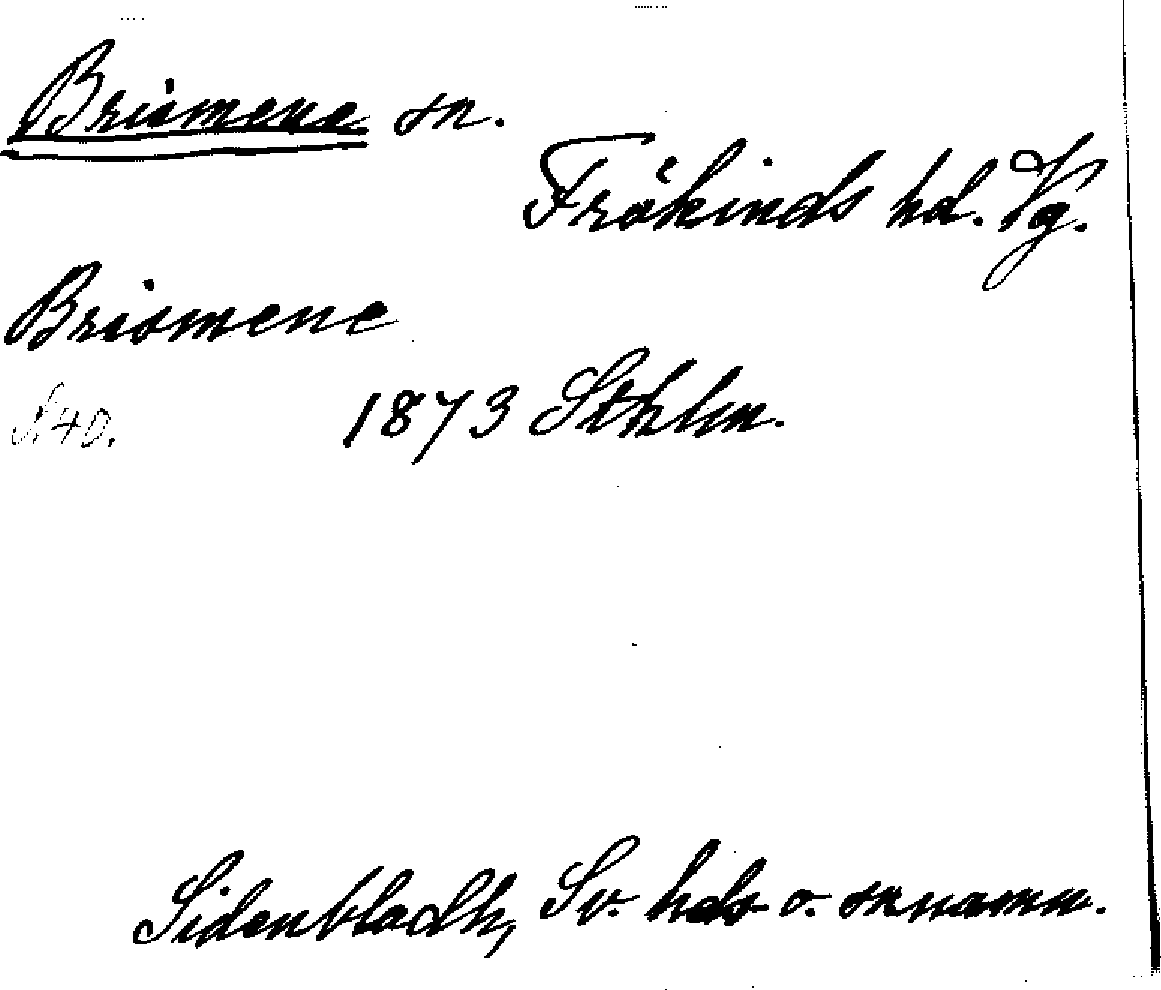 Brismene sn.
Frökinds hd. Vg.
Brismene
S. 40. 1873 Sthlm.
Sidenbladh, Sv. hds- o. sknamn.